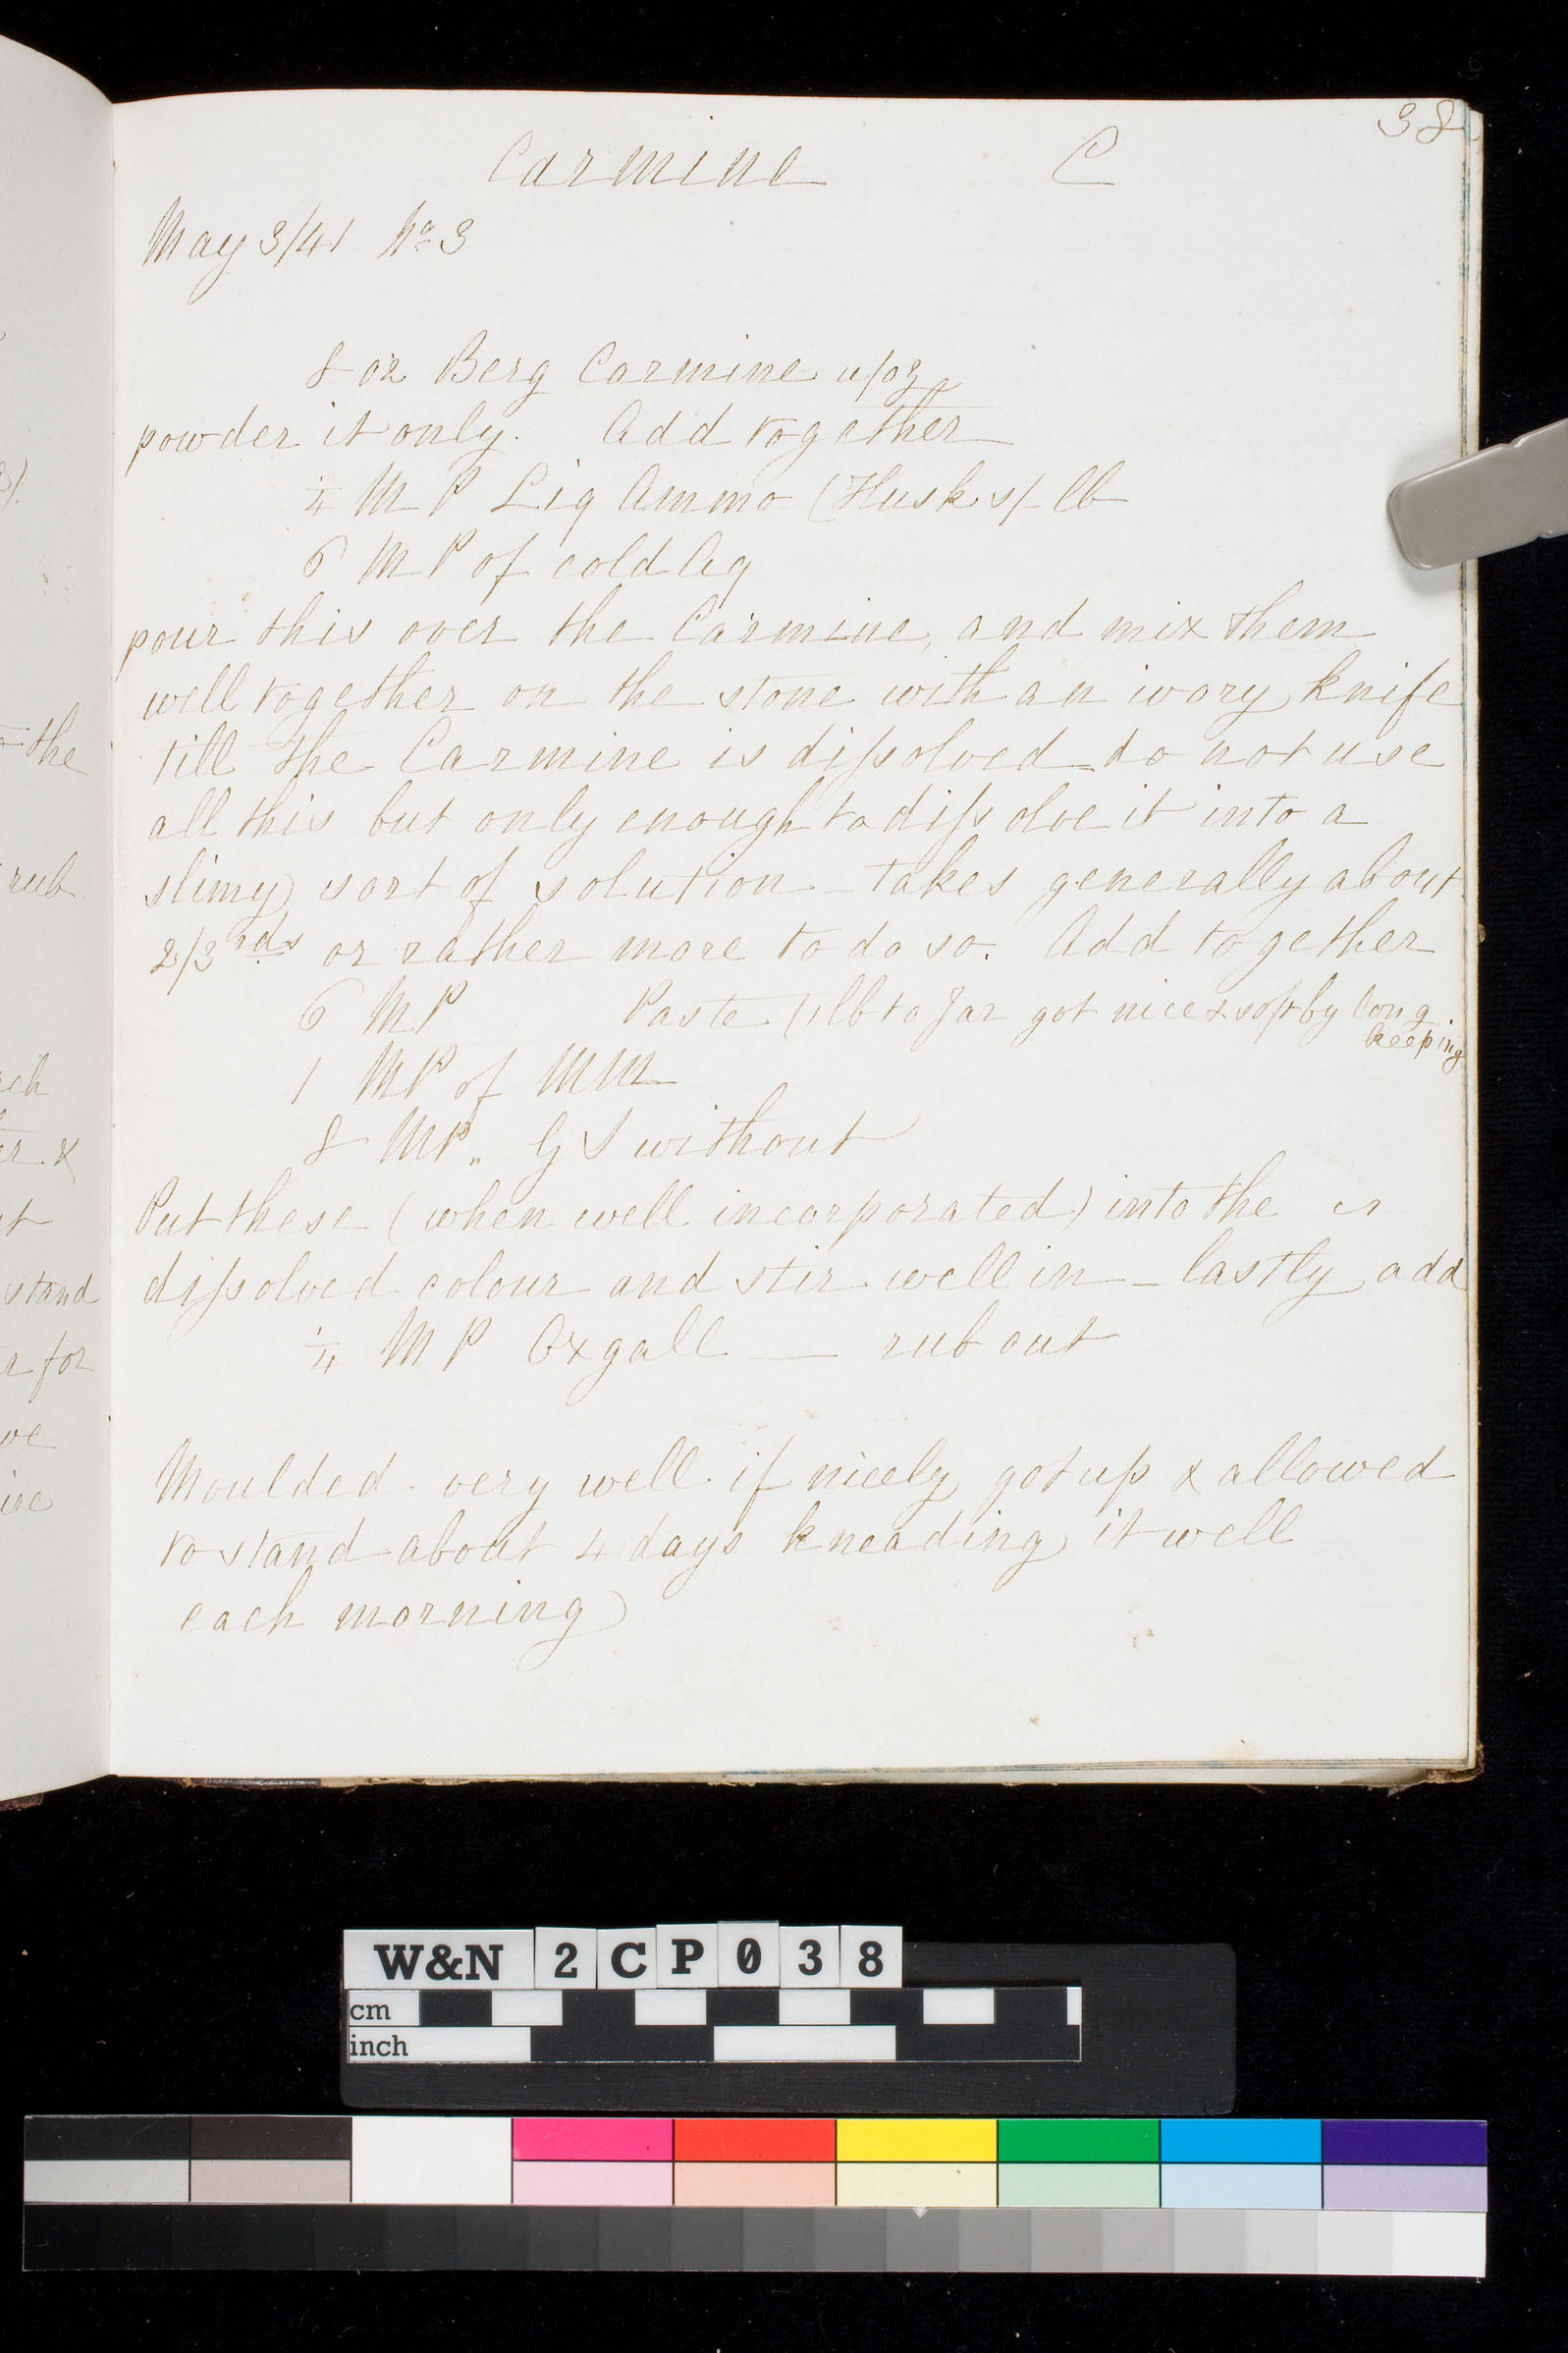 38
Carmine C
May 3/41 No 3
8 oz Berg Carmine u/oz
powder it only. Add together
1/4 MP Liq Ammo (Husks/- lb
6 MP of cold Aq
pour this over the Carmine, and mix them
well together on the stone with an ivory knife
till the Carmine is dissolved - do not use
all this but only enough to dissolve it into a
slimy sort of solution - takes generally about
2/3rds or rather more to do so. Add together
6 MP Paste (1 lb to Jar got nice & soft by long
keeping
1 MP of MM
8 MP " GS without
Put these (when well incorporated) into the
dissolved colour and stir well in - lastly add
1/4 MP Oxgall — rub out
Moulded very well if nicely got up & allowed
to stand about 4 days kneading it well
each morning
the
rub
stand
for
W&N 2CP038
cm
inch